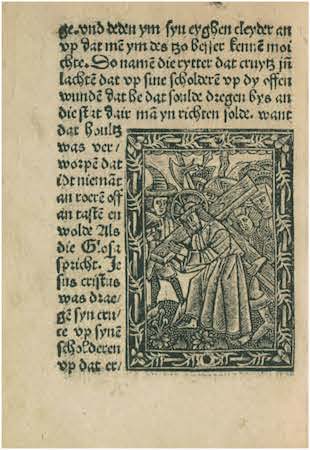 ge. vnd deden ym syn eyghen cleyder an
vp dat mē ym des tzo besser kennē moi
chte. Do namē die rytter dat cruytz jn̄
lachtē dat vp sine scholderē vp dy offen
wundē dat he dat soulde dregen bys an
die stat dair mā yn richten solde. want
dat houltz
was ver/
worpē dat
idt niemāt
an roerē off
an tastē en
wolde Als
die Glosa
spricht. Je
sus cristus
was drae-
gē syn cru
tze vp synē
scholderen
vp dat er/